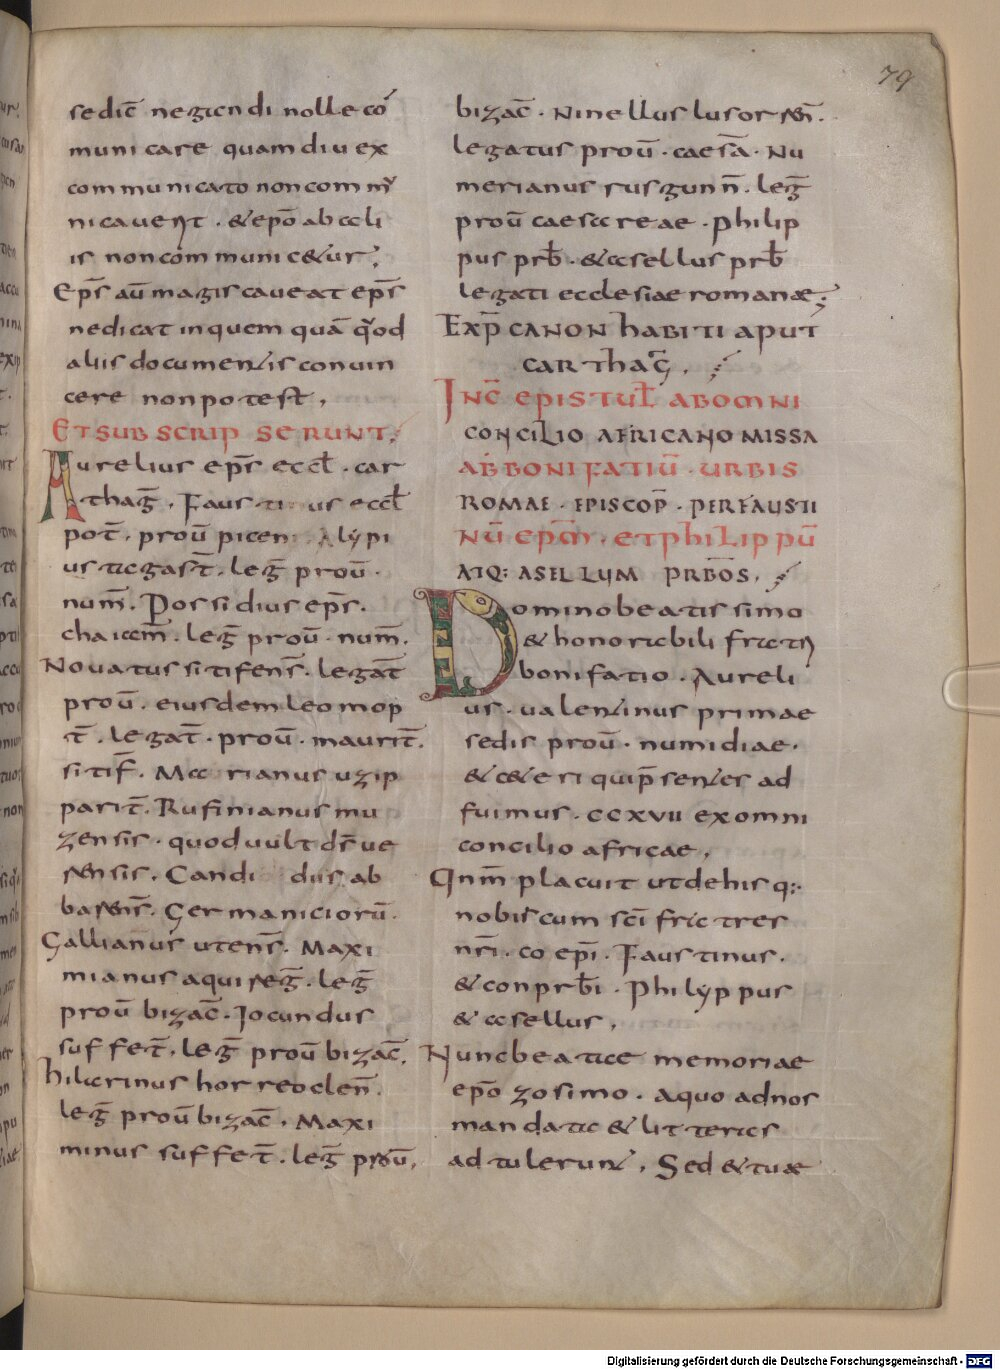 79
sedic̄ negandi nolle cō
municare quamdiu ex
communicato non commu
nicauerit . & ep̄o ab ali
is non communicetur ;
Ep̄s aū magis caueat ep̄s
ne dicat in quem quā quod
aliis documentis conuin
cere non potest ,
ET SUBSCRIPSERUNT ;
Aurelius ep̄s eccl̄ . car
thaḡ . Faustinus eccl̄
pot̄ . prou̅ piceni Alypi
us tagast̄ . leg̅ prou̅ .
num̄ . Possidius ep̄s .
chalcem̄ . leg̅ prou̅ . num̄ .
Nouatus sitifens̄ . legat̄
prou̅ . eiusdem leo mop
t̄ . legat̄ . prou̅ . maurit̄ .
sitif̄ . Macrianus uzip
parit̄ . Rufinianus mu
zensis . quoduult ds̄ ue
rensis . Candidus ab
barens̄ . Germaniciorū .
Gallianus utens̄ . Maxi
mianus aquireg̅ . leg̅
prou̅ bizac̄ . Jocundus
suffet̄ . leg̅ prou̅ bizac̄ .
hilarinus horreo clen̄ .
leg̅ prou̅ bizac̄ . Maxi
minus suffet̄ . leg̅ prou̅ .
bizac̄ . Ninellus lusorren̄ .
legatus prou̅ . caes̄a . Nu
merianus rusgunn̄ . leg̅
prou̅ caesareae . Philip
pus prb̄ . & asellus prb̄
legati ecclesiae romanae ;
EXP̄ CANON HABITI APUT
CARTHAḠ .
INC̄ EPISTUL̄ AB OMNI
CONCILIO AFRICANO MISSA
AB BONIFATIŪ . URBIS
ROMAE . EPISCOP̄ . PER FAUSTI
NŪ EP̄M . ET PHILIPPŪ
ATQ: ASELLUM PRB̄OS .
Domino beatissimo
& honorabili fratri
bonifatio . Aureli
us . ualentinus primae
sedis prou̅ . numidiae .
& ceteri qui p̄sentes ad
fuimus . CCXVII ex omni
concilio africae .
Qn̄m placuit ut de his q:
nobiscum sc̄i fratres
nr̄i . coep̄i . Faustinus .
& conprb̄i . Philyppus
& asellus .
Nunc beatae memoriae
ep̄o zosimo . a quo ad nos
mandata & litteras
adtulerunt . Sed & tuae
Digitalisierung gefördert durch die Deutsche Forschungsgemeinschaft - DFG